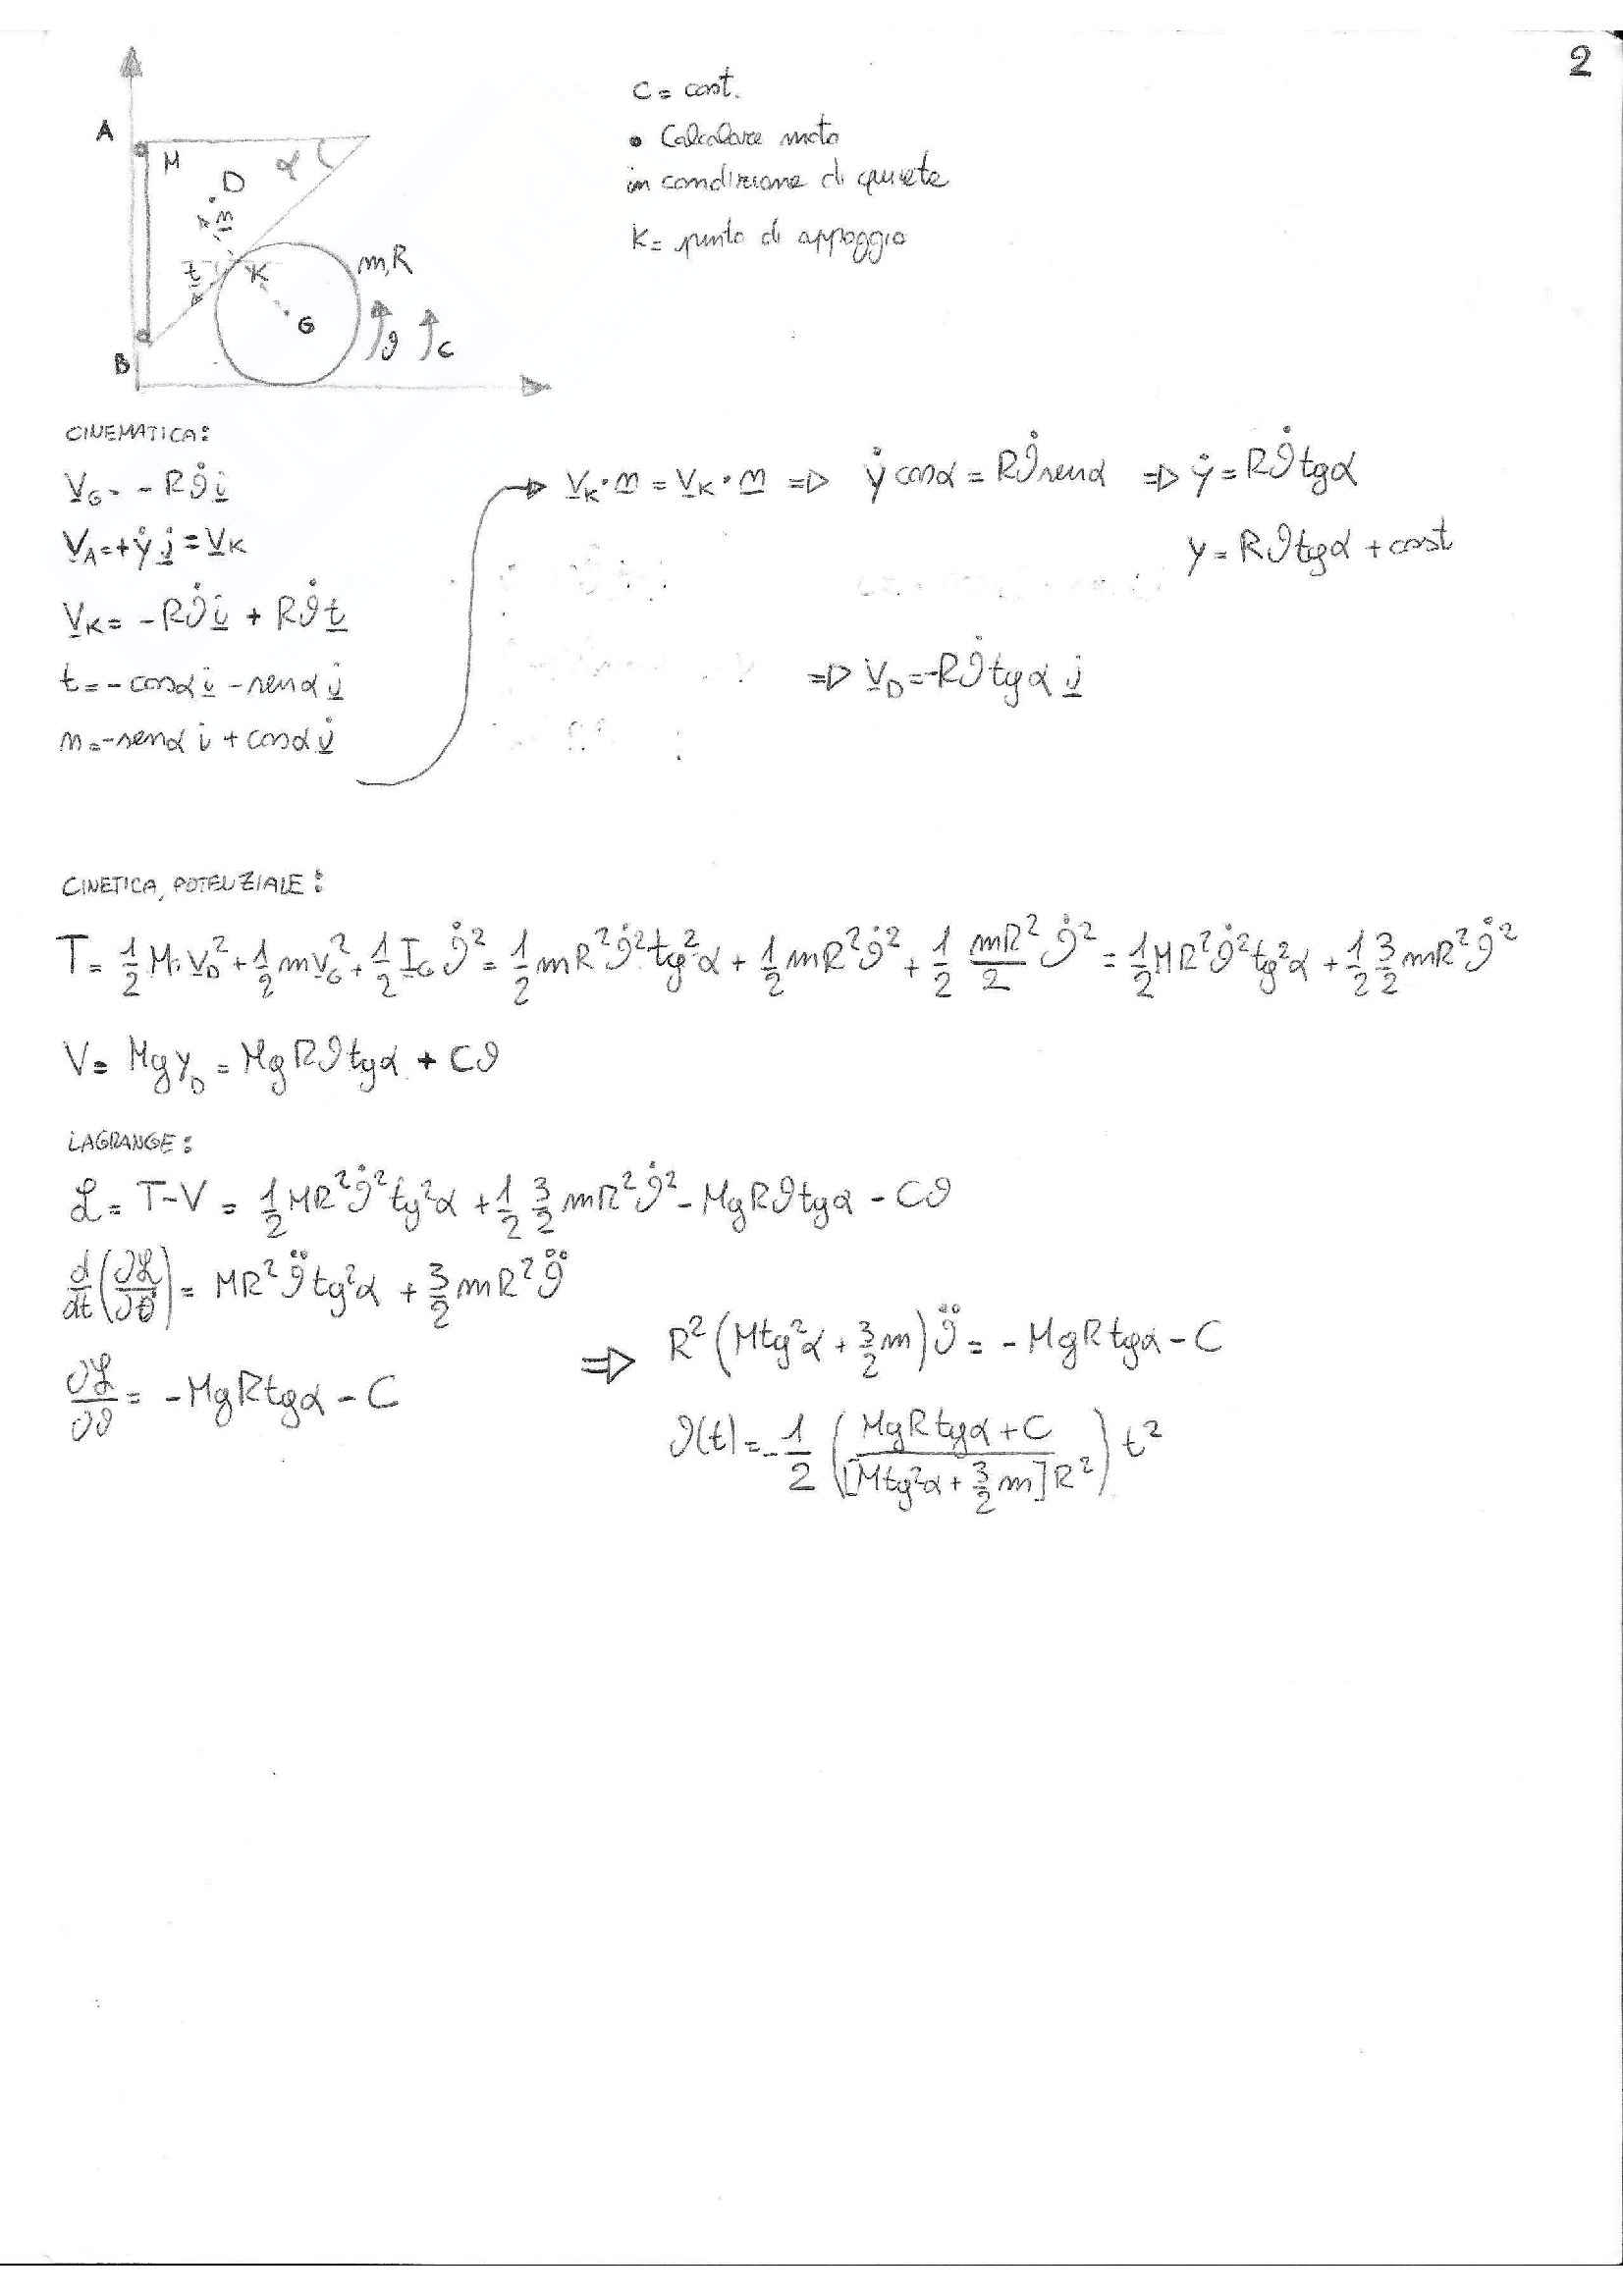 2
A
M
D
α
n
t
K
m,R
G
ϑ
C
B
C = cost.
• Calcolare moto
in condizione di quiete
K = punto di appoggio
CINEMATICA:
V_G = -Rϑ̇ i
V_A = +ẏ j = V_K
V_K = -Rϑ̇ i + Rϑ̇ t
t = -cosα i - senα j
n = -senα i + cosα j
V_K · n = V_K · n => ẏ cosα = Rϑ̇ senα => ẏ = Rϑ̇ tgα
y = Rϑ tgα + cost
=> V_D = -Rϑ̇ tgα j
CINETICA, POTENZIALE:
T = 1/2 M · V_D² + 1/2 m V_G² + 1/2 I_G ϑ̇² = 1/2 m R² ϑ̇² tg²α + 1/2 m R² ϑ̇² + 1/2 mR²/2 ϑ̇² = 1/2 M R² ϑ̇² tg²α + 1/2 3/2 m R² ϑ̇²
V = Mg y_D = Mg Rϑ tgα + Cϑ
LAGRANGE:
ℒ = T-V = 1/2 M R² ϑ̇² tg²α + 1/2 3/2 m R² ϑ̇² - Mg Rϑ tgα - Cϑ
d/dt (∂ℒ/∂ϑ̇) = M R² ϑ̈ tg²α + 3/2 m R² ϑ̈
∂ℒ/∂ϑ = -Mg R tgα - C
=> R² (M tg²α + 3/2 m) ϑ̈ = -Mg R tgα - C
ϑ(t) = -1/2 (Mg R tgα + C / [M tg²α + 3/2 m] R²) t²